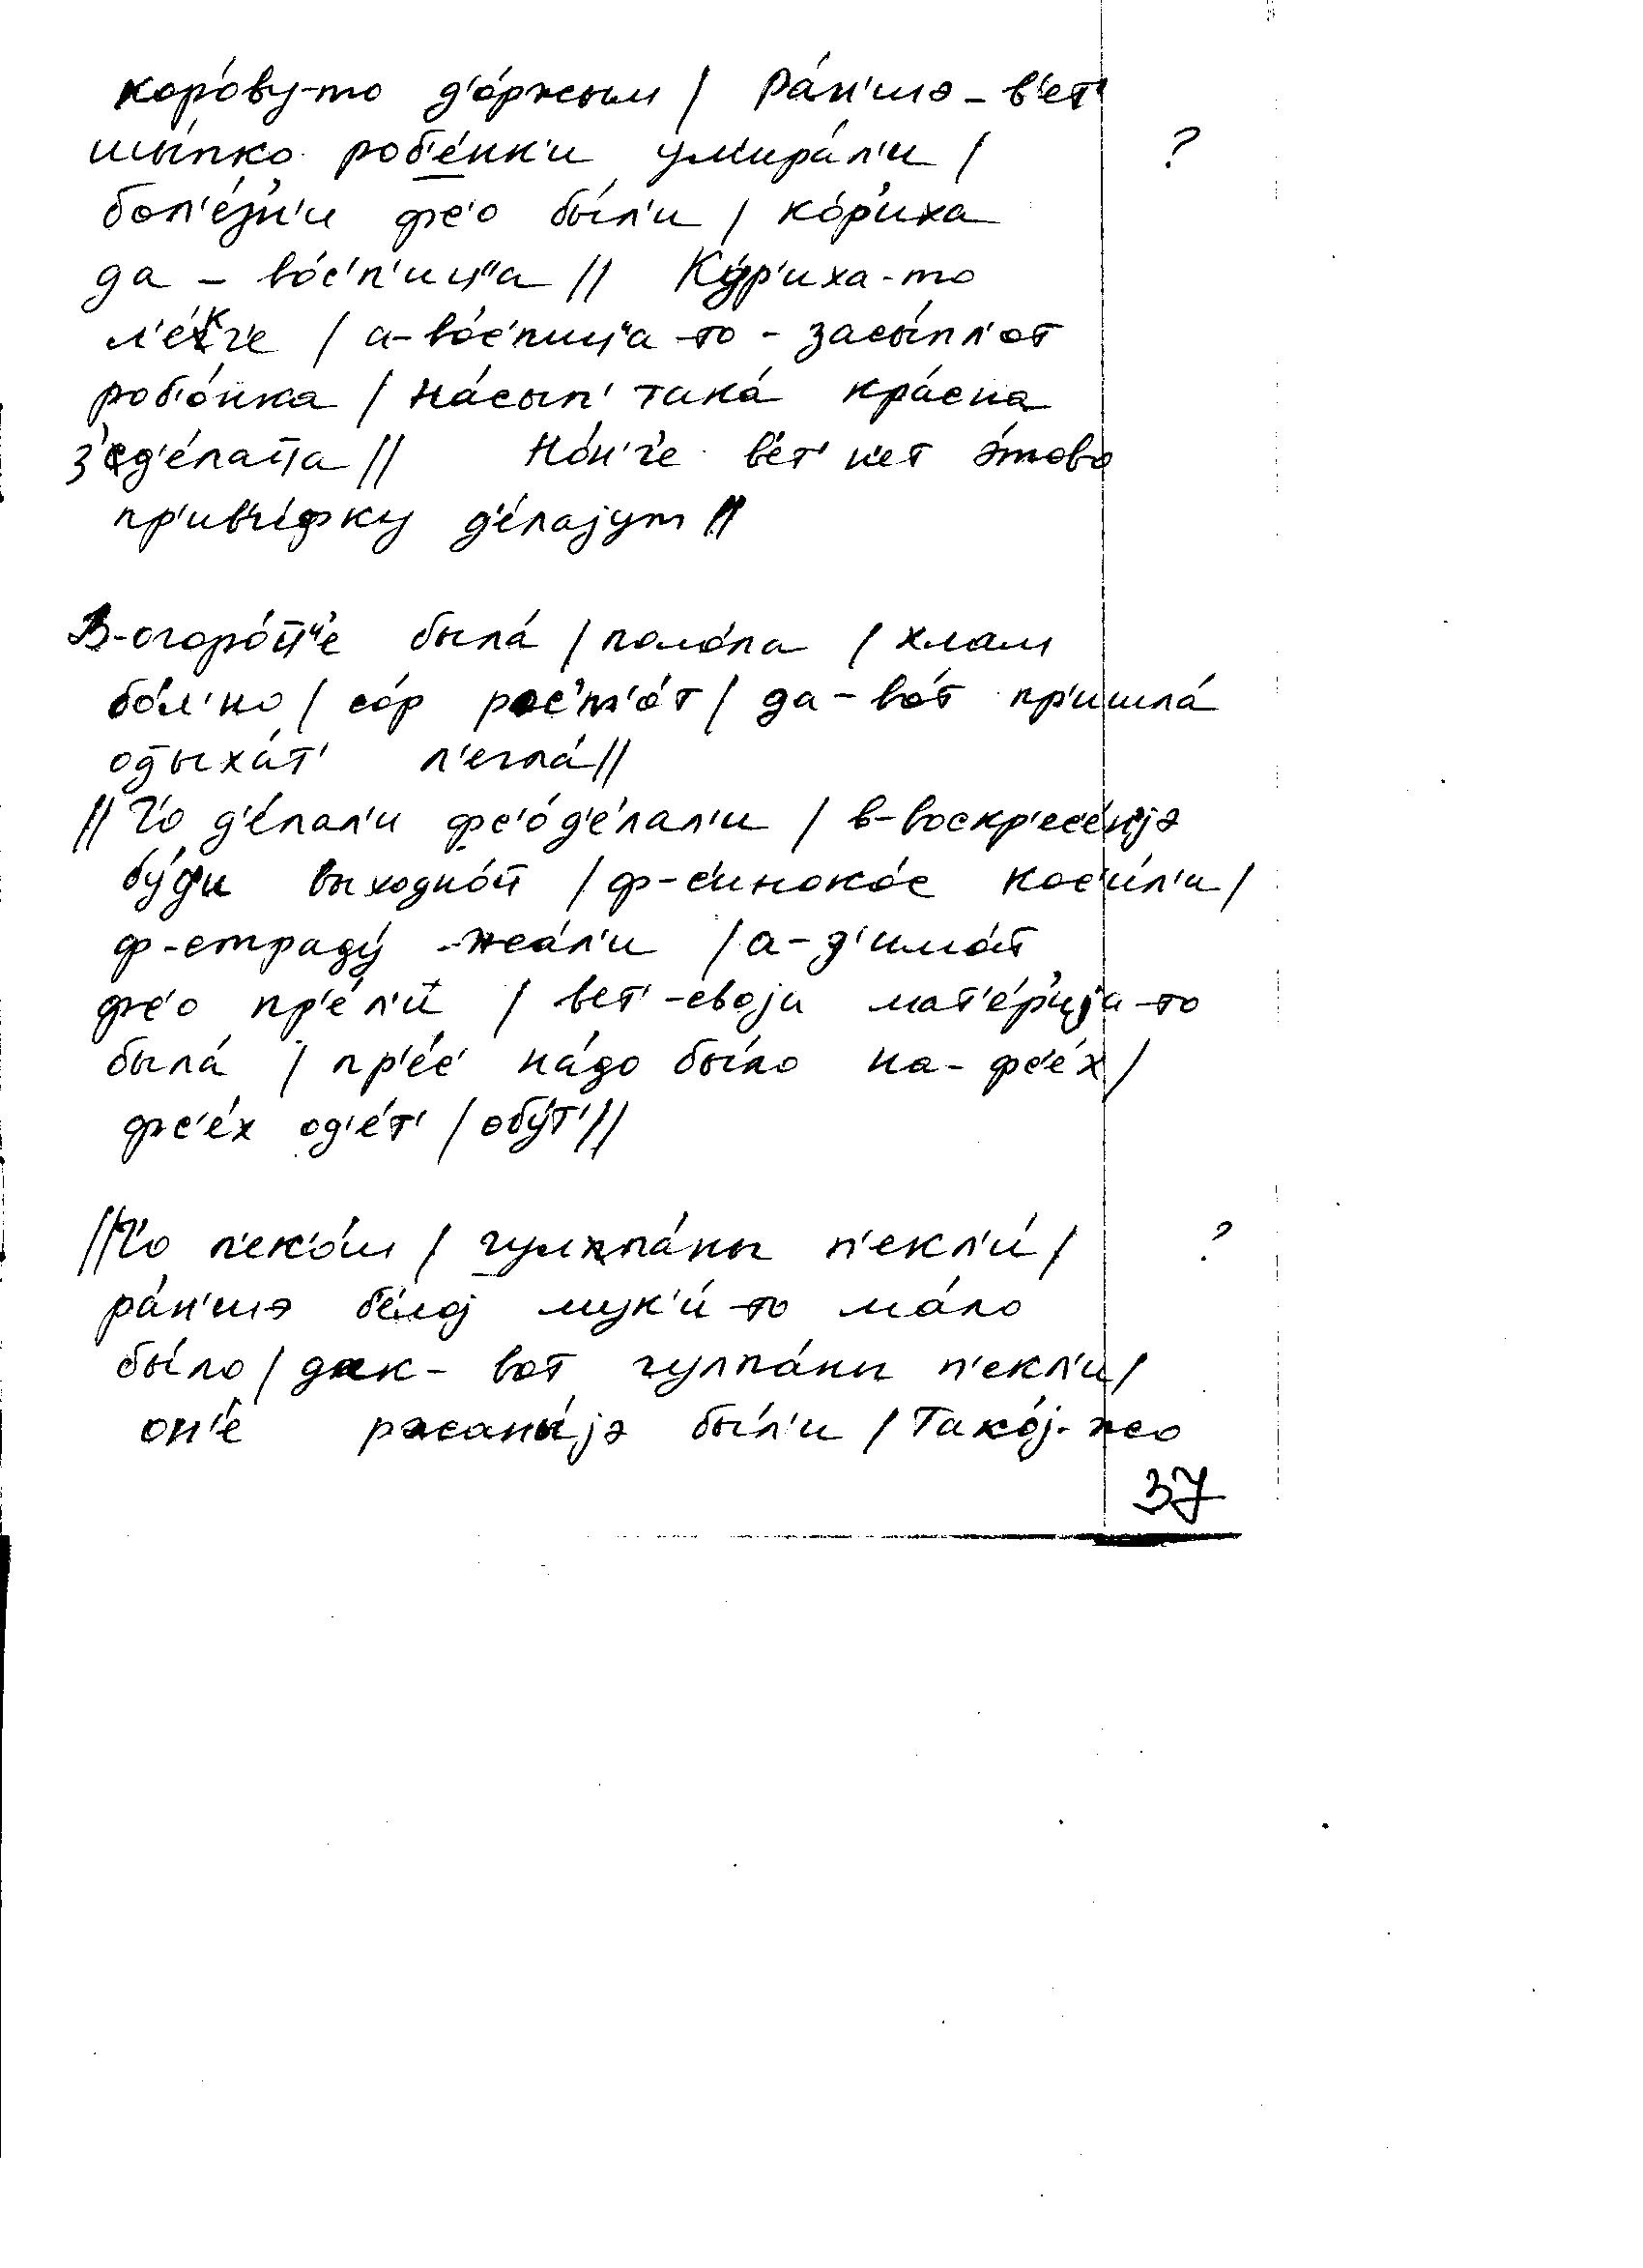 коро́ву-то д'о́ржым / Ра́н'шэ – в'ет'
шы́пко роб'е́нк'и ум'ира́л'и / ?
бол'е́з'н'и фс'о бы́л'и / ко́р'иха
да – во́с'п'иц"а // Ку́р'иха-то
л'е́кч'е / а-во́с'пиц"а-то – засы́пл'от
роб'о́нка / на́сып' така́ кра́сна
з'д'е́лац̄а // Но́н'ч'е в'ет' н'ет э́тово
пр'ив'и́фку д'е́лајут //
В-огоро́т̄ц'е была́ / поло́ла / хлам
бо́л'но / со́р рос'т'о́т / да-во́т пр'ишла́
од̄ыха́т' л'егла́ //
// Ч'о д'е́лал'и фс'о́ д'е́лал'и / в-воскр'ес'е́н'јэ
бу́ди выходно́й / ф-с'иноко́с кос'и́л'и /
ф-страду́ -жа́л'и / а-з'имо́й
фс'о пр'е́л'и / вет'-своjа мат'е́р'иja-то
была́ / пр'ес' на́до бы́ло на-фс'е́х /
фс'е́х од'е́т' / обу́т' //
// Ч'о п'ек'о́м / гулпа́ны п'екл'и́ / ?
ра́н'шэ б'е́лој мук'и́-то ма́ло
бы́ло / дак – вот гулпа́ны п'екл'и /
он'е́ ржаны́јэ бы́л'и / Тако́ј-жо
37